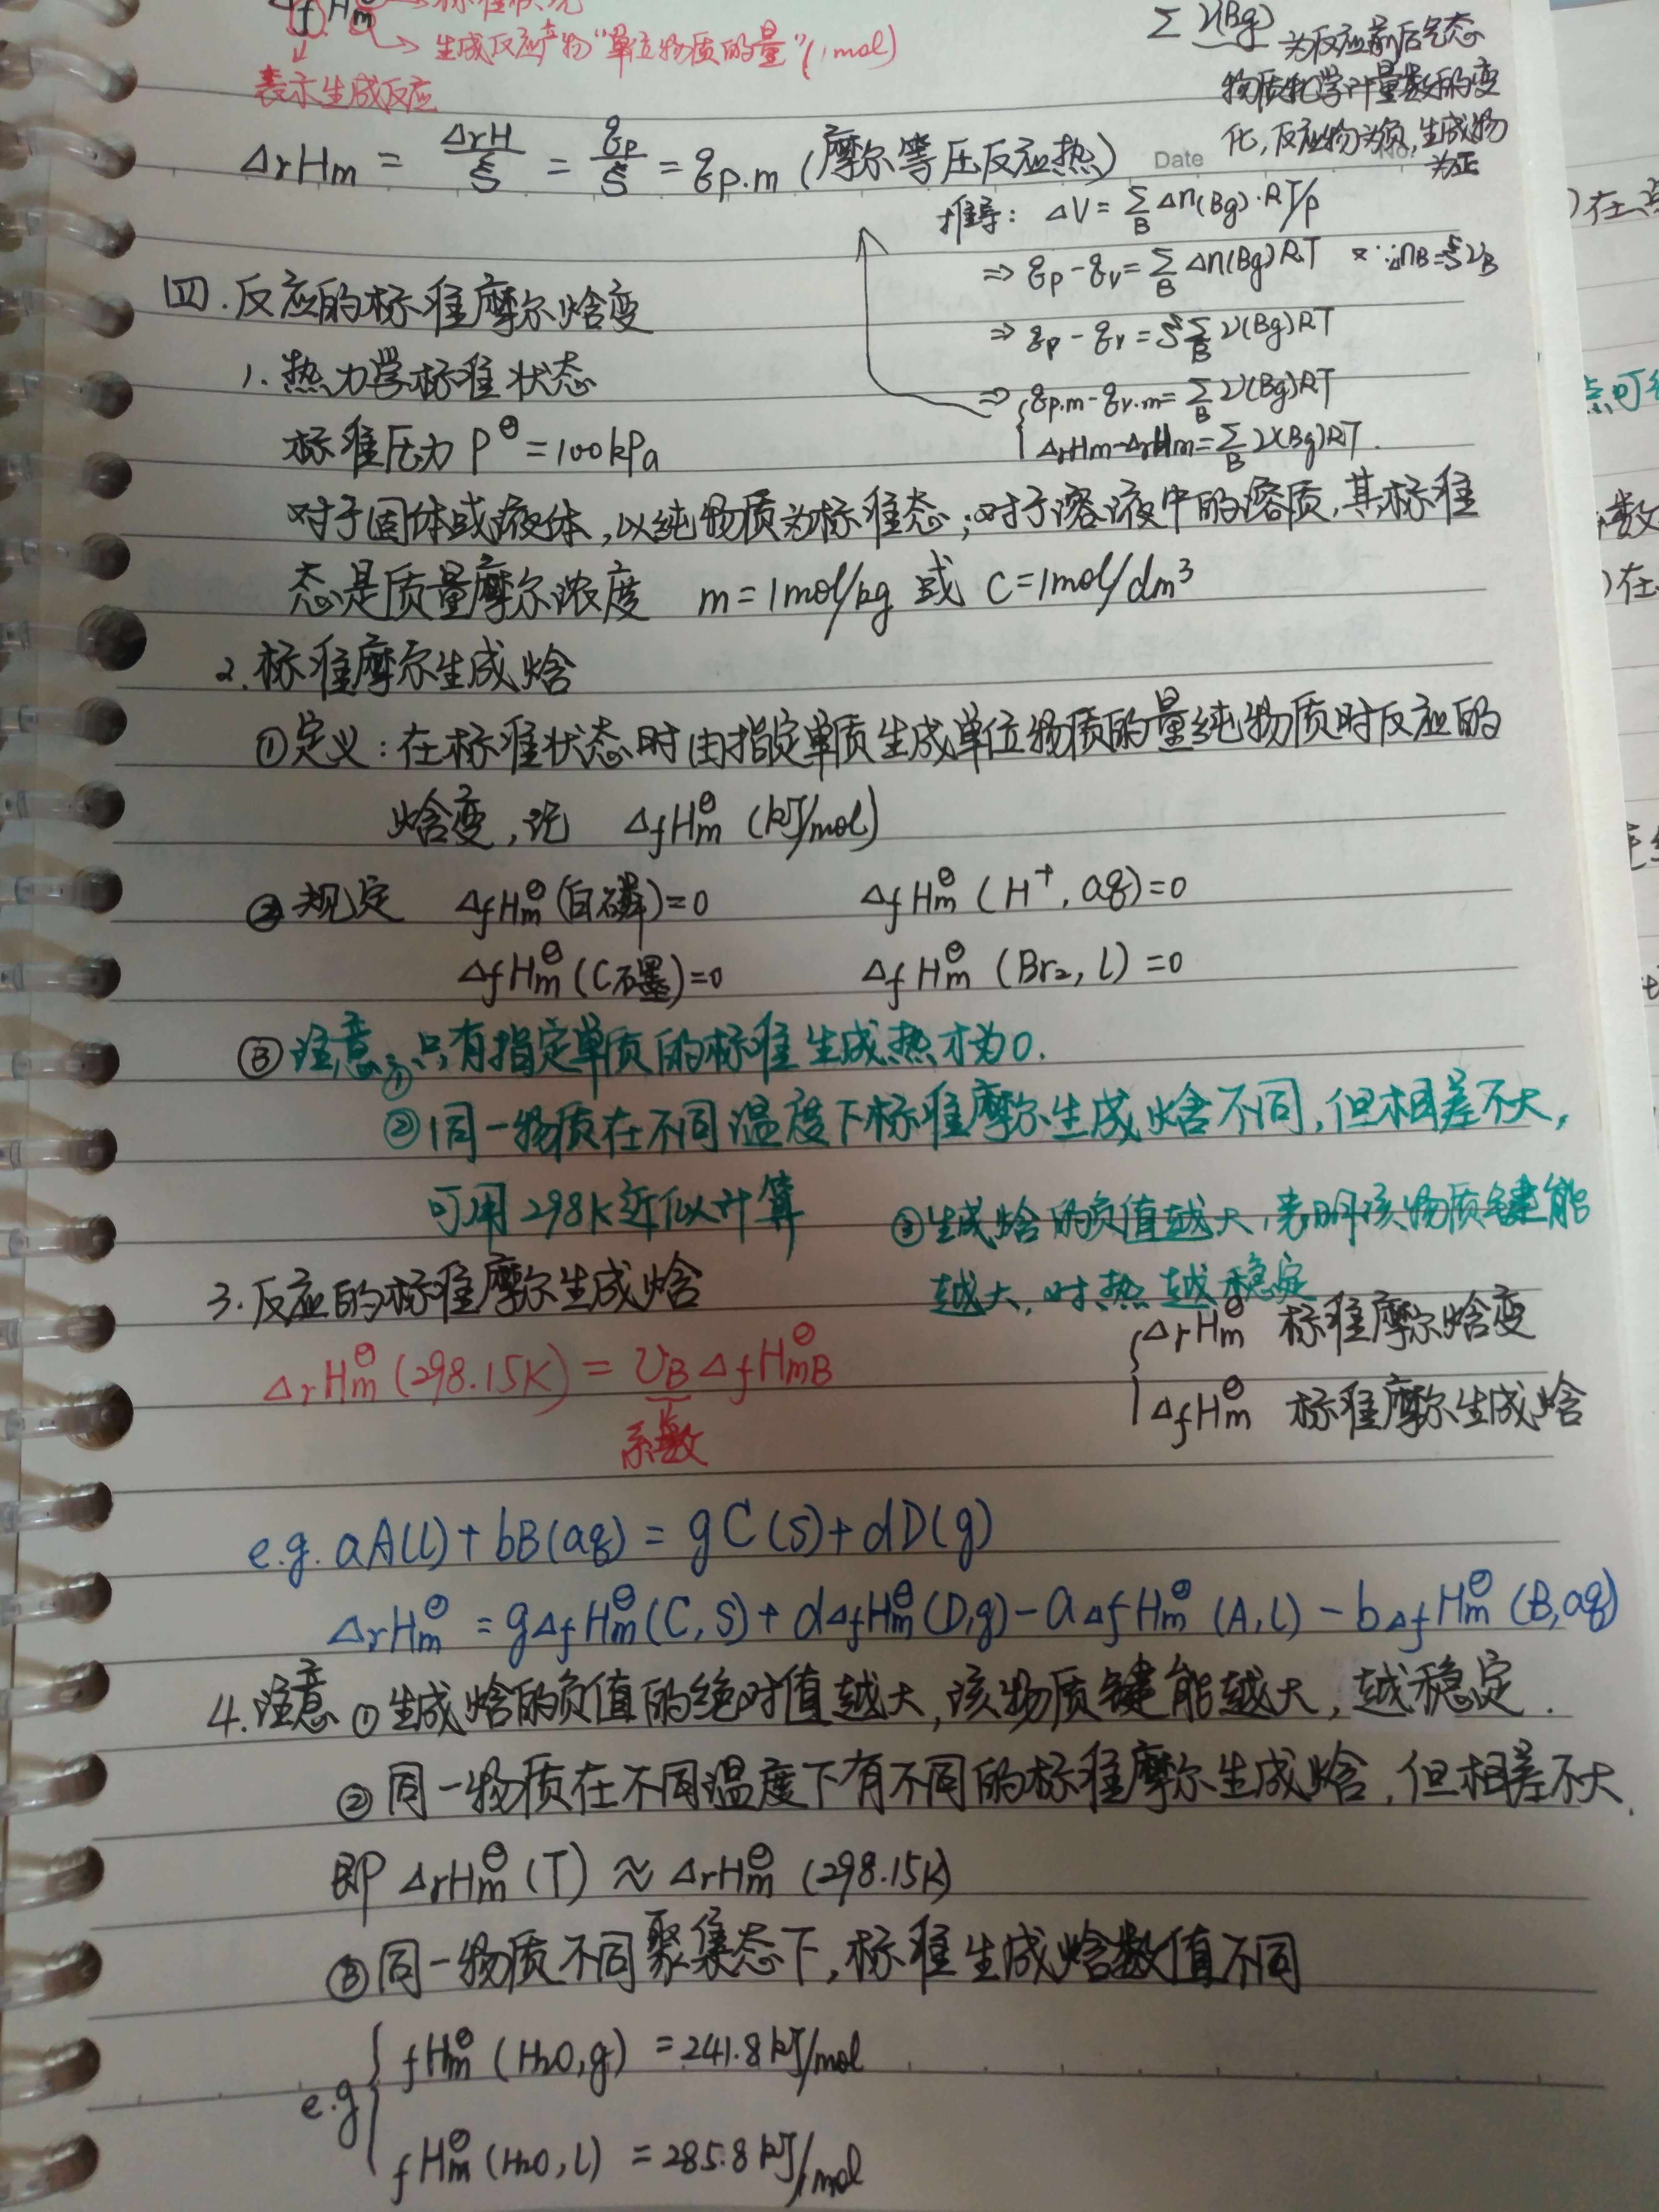 ΔfHm → 标准状况
→ 生成反应产物"单位物质的量"(1mol)
表示生成反应
Σν(Bg) 为反应前后气态
物质化学计量数的变
化,反应物为负,生成物
为正
ΔrHm = ΔrH/ξ = qp/ξ = qp.m (摩尔等压反应热)
Date No.
推导: ΔV = Σ_B Δn(Bg)·RT/p
⇒ qp - qv = Σ_B Δn(Bg)RT ∵ΔnB=ξνB
⇒ qp - qv = ξΣ_B ν(Bg)RT
⇒ { qp.m - qv.m = Σ_B ν(Bg)RT
ΔrHm - ΔrUm = Σ_B ν(Bg)RT.
四.反应的标准摩尔焓变
1.热力学标准状态
标准压力 P^θ = 100kPa
对于固体或液体,以纯物质为标准态;对于溶液中的溶质,其标准
态是质量摩尔浓度 m=1mol/kg 或 C=1mol/dm³
2.标准摩尔生成焓
①定义:在标准状态时由指定单质生成单位物质的量纯物质时反应的
焓变,记 ΔfHm^θ (kJ/mol)
②规定 ΔfHm^θ(白磷)=0 ΔfHm^θ (H⁺, aq)=0
ΔfHm^θ(C石墨)=0 ΔfHm^θ (Br₂, l)=0
③注意:①只有指定单质的标准生成热才为0.
②同一物质在不同温度下标准摩尔生成焓不同,但相差不大,
可用298K近似计算
③生成焓的负值越大,表明该物质键能
越大,对热越稳定
3.反应的标准摩尔生成焓
ΔrHm^θ (298.15K) = νB ΔfHm^θ B
系数
{ ΔrHm^θ 标准摩尔焓变
ΔfHm^θ 标准摩尔生成焓
e.g. aA(l)+bB(aq) = gC(s)+dD(g)
ΔrHm^θ = gΔfHm^θ(C,s)+dΔfHm^θ(D,g)-aΔfHm^θ(A,l)-bΔfHm^θ(B,aq)
4.注意①生成焓的负值的绝对值越大,该物质键能越大,越稳定.
②同一物质在不同温度下有不同的标准摩尔生成焓,但相差不大,
即 ΔrHm^θ(T) ≈ ΔrHm^θ (298.15K)
③同一物质不同聚集态下,标准生成焓数值不同
e.g { fHm^θ (H₂O,g) = 241.8 kJ/mol
fHm^θ (H₂O,l) = 285.8 kJ/mol